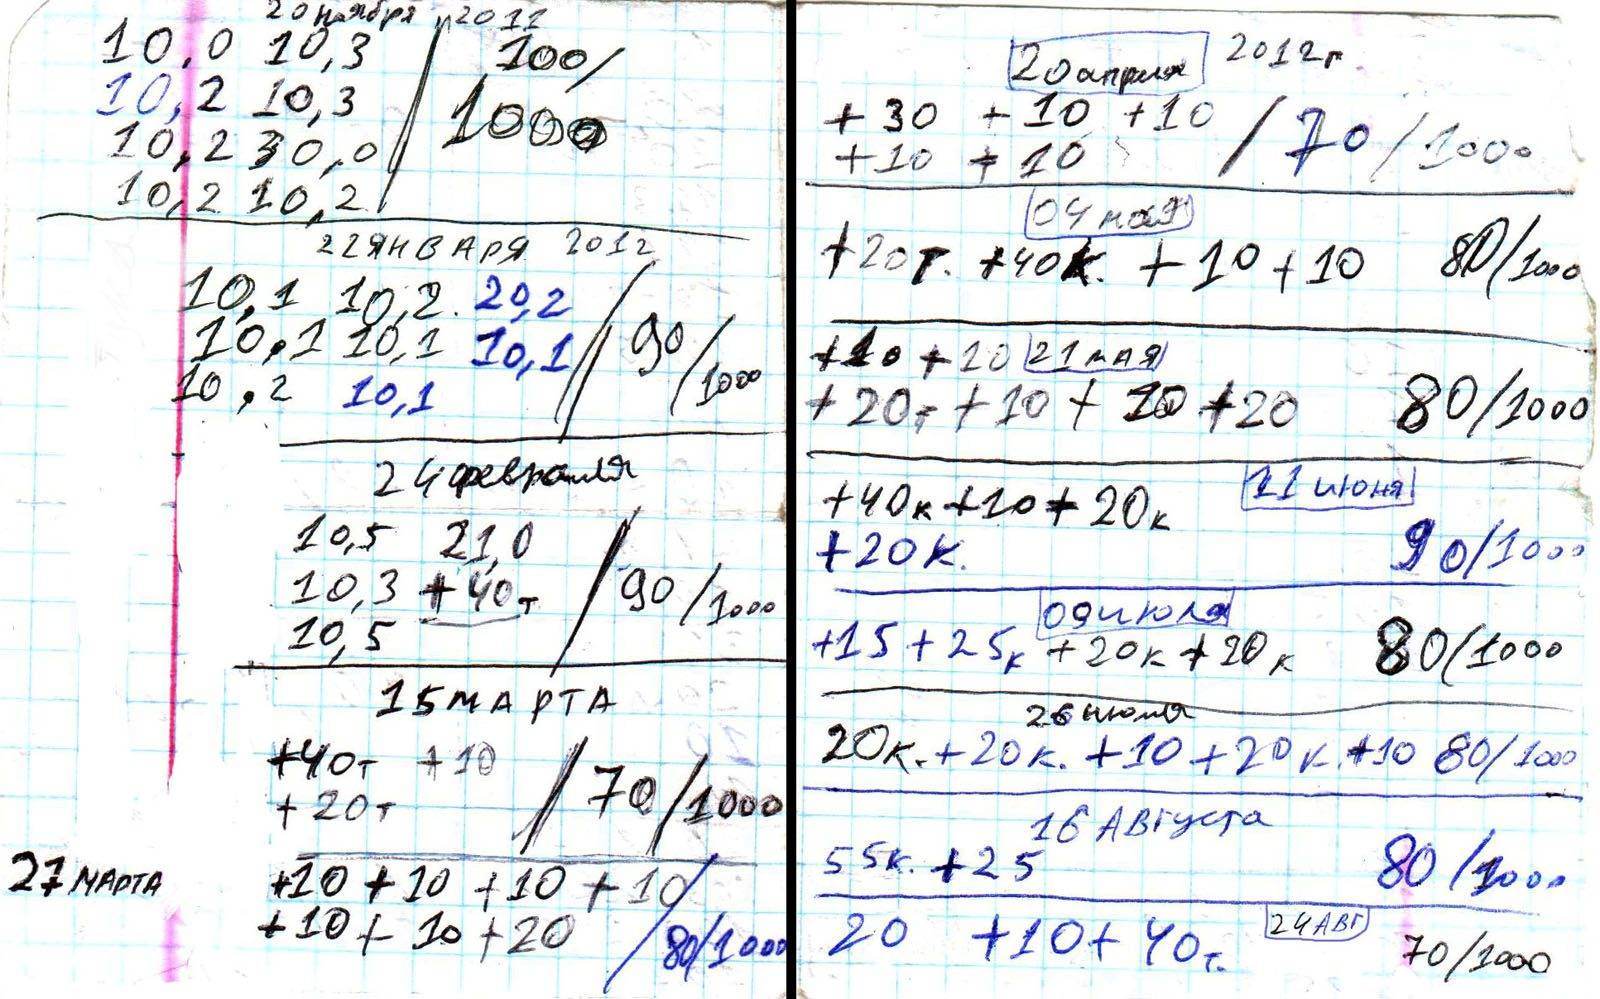 20 ноября 2011
10,0 10,3 / 100/
10,2 10,3 1000
10,2 30,0
10,2 10,2
22 ЯНВАРЯ 2012
10,1 10,2 20,2
10,1 10,1 10,1 / 90/1000
10,2 10,1
24 февраля
10,5 21,0
10,3 +40т / 90/1000
10,5
15 МАРТА
+40т +10 / 70/1000
+20т
27 МАРТА +10 +10 +10 +10
+10 + 10 +20 / 80/1000
20 апреля 2012г
+30 +10 +10 / 70/1000
+10 +10
04 мая
+20т. +40к. +10 +10 80/1000
+10 +10 21 мая
+20т +10 + 10 +20 80/1000
+40к +10 + 20к 11 июня
+20к. 90/1000
09 июля
+15 +25к +20к +20к 80/1000
26 июля
20к. +20к. +10 +20к. +10 80/1000
16 Августа
55к. +25 80/1000
20 +10 + 40т. 24 АВГ 70/1000